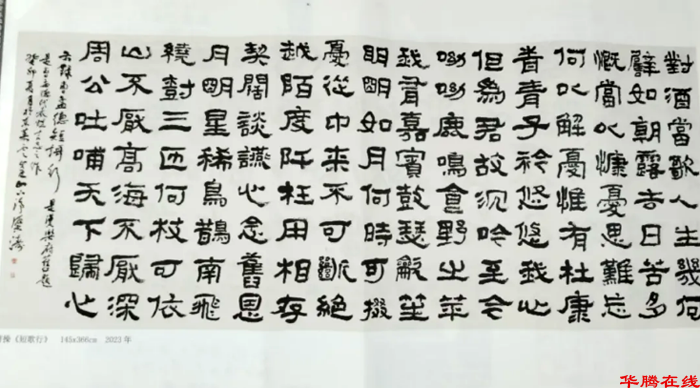 對酒當歌人生幾何
譬如朝露去日苦多
慨當以慷憂思難忘
何以解憂惟有杜康
青青子衿悠悠我心
但為君故沉吟至今
呦呦鹿鳴食野之苹
我有嘉賓鼓瑟龡笙
明明如月何時可掇
憂從中來不可斷絕
越陌度阡枉用相存
契闊談讌心念舊恩
月明星稀烏鵲南飛
繞樹三匝何枝可依
山不厭高海不厭深
周公吐哺天下歸心
操《短歌行》 145x366cm 2023 年
华腾在线